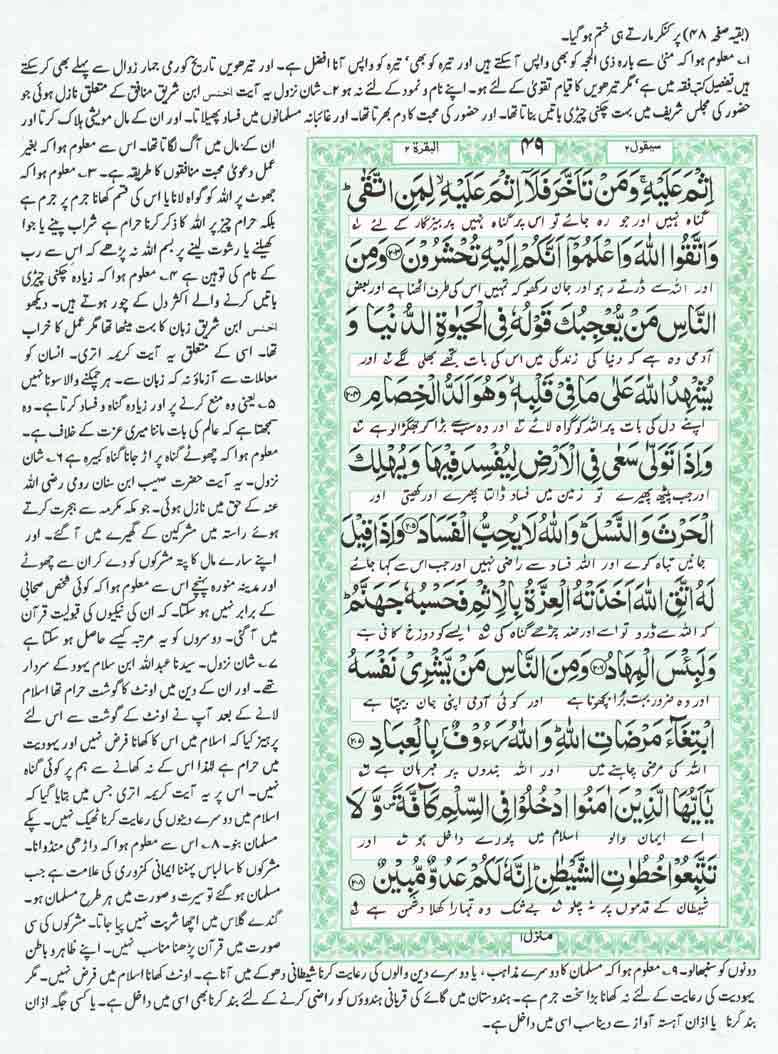 (بقیہ صفحہ ۴۸) پر کنکر مارتے ہی ختم ہو گیا۔
۱۔ معلوم ہوا کہ منٰی سے بارہ ذی الحجہ کو بھی واپس آسکتے ہیں اور تیرہ کو بھی' تیرہ کو واپس آنا افضل ہے۔ اور تیرھویں تاریخ کو رمی جمار زوال سے پہلے بھی کر سکتے
ہیں تفصیل کتب فقہ میں ہے' مگر تیرھویں کا قیام تقویٰ کے لئے ہو۔ اپنے نام و نمود کے لئے نہ ہو ۲۔ شان نزول یہ آیت اخنس ابن شریق منافق کے متعلق نازل ہوئی جو
حضور کی مجلس شریف میں بہت چکنی چپڑی باتیں بناتا تھا۔ اور حضور کی محبت کا دم بھرتا تھا۔ اور غائبانہ مسلمانوں میں فساد پھیلاتا۔ اور ان کے مال مویشی ہلاک کرتا اور
ان کے مال میں آگ لگاتا تھا۔ اس سے معلوم ہوا کہ بغیر
عمل دعویٰ محبت منافقوں کا طریقہ ہے۔ ۳۔ معلوم ہوا کہ
جھوٹ پر اللہ کو گواہ لانا یا اس کی قسم کھانا جرم پر جرم ہے
بلکہ حرام چیز پر اللہ کا ذکر کرنا حرام ہے شراب پینے یا جوا
کھیلنے یا رشوت لینے پر بسم اللہ نہ پڑھے کہ اس سے رب
کے نام کی توہین ہے ۴۔ معلوم ہوا کہ زیادہ چکنی چپڑی
باتیں کرنے والے اکثر دل کے چور ہوتے ہیں۔ دیکھو
اخنس ابن شریق زبان کا بہت میٹھا تھا مگر عمل کا خراب
تھا۔ اسی کے متعلق یہ آیت کریمہ اتری۔ انسان کو
معاملات سے آزماؤ نہ کہ زبان سے۔ ہر چمکنے والا سونا نہیں
۵۔ یعنی وہ منع کرنے پر اور زیادہ گناہ و فساد کرتا ہے۔ وہ
سمجھتا ہے کہ عالم کی بات ماننا میری عزت کے خلاف ہے۔
معلوم ہوا کہ چھوٹے گناہ پر اڑ جانا گناہ کبیرہ ہے ۶۔ شان
نزول۔ یہ آیت حضرت صہیب ابن سنان رومی رضی اللہ
عنہ کے حق میں نازل ہوئی۔ جو مکہ مکرمہ سے ہجرت کرتے
ہوئے راستہ میں مشرکین کے گھیرے میں آ گئے۔ اور
اپنے سارے مال کا پتہ مشرکوں کو دے کر ان سے چھوٹے
اور مدینہ منورہ پہنچے اس سے معلوم ہوا کہ کوئی شخص صحابی
کے برابر نہیں ہو سکتا۔ کہ ان کی نیکیوں کی قبولیت قرآن
میں آ گئی۔ دوسروں کو یہ مرتبہ کیسے حاصل ہو سکتا ہے
۷۔ شان نزول۔ سیدنا عبداللہ ابن سلام یہود کے سردار
تھے۔ اور ان کے دین میں اونٹ کا گوشت حرام تھا اسلام
لانے کے بعد آپ نے اونٹ کے گوشت سے اس لئے
پرہیز کیا کہ اسلام میں اس کا کھانا فرض نہیں اور یہودیت
میں حرام ہے لہٰذا اس کے نہ کھانے سے ہم پر کوئی گناہ
نہیں۔ اس پر یہ آیت کریمہ اتری جس میں بتایا گیا کہ
اسلام میں دوسرے دینوں کی رعایت کرنا ٹھیک نہیں۔ پکے
مسلمان بنو۔ ۸۔ اس سے معلوم ہوا کہ داڑھی منڈوانا۔
مشرکوں کا سا لباس پہننا ایمانی کمزوری کی علامت ہے جب
مسلمان ہو گئے تو سیرت و صورت میں ہر طرح مسلمان ہو۔
گندے گلاس میں اچھا شربت نہیں پیا جاتا۔ مشرکوں کی سی
صورت میں قرآن پڑھنا مناسب نہیں۔ اپنے ظاہر و باطن
سیقول ۲
۴۹
البقرۃ ۲
اِثْمَ عَلَیْهِ ۚ وَمَنْ تَاَخَّرَ فَلَاۤ اِثْمَ عَلَیْهِ ۙ لِمَنِ اتَّقٰی ؕ
گناہ نہیں اور جو رہ جائے تو اس پر گناہ نہیں پرہیزگار کے لئے
وَاتَّقُوا اللّٰهَ وَاعْلَمُوْۤا اَنَّكُمْ اِلَیْهِ تُحْشَرُوْنَ ﴿۲۰۳﴾ وَمِنَ
اور اللہ سے ڈرتے رہو اور جان رکھو کہ تمہیں اسی کی طرف اٹھنا ہے اور بعض
النَّاسِ مَنْ یُّعْجِبُكَ قَوْلُهٗ فِی الْحَیٰوةِ الدُّنْیَا وَ
آدمی وہ ہے کہ دنیا کی زندگی میں اس کی بات تجھے بھلی لگے اور
یُشْهِدُ اللّٰهَ عَلٰی مَا فِیْ قَلْبِهٖ ۙ وَهُوَ اَلَدُّ الْخِصَامِ ﴿۲۰۴﴾
اپنے دل کی بات پر اللہ کو گواہ لائے اور وہ سب سے بڑا کر جھگڑالو ہے
وَاِذَا تَوَلّٰی سَعٰی فِی الْاَرْضِ لِیُفْسِدَ فِیْهَا وَیُهْلِكَ
اور جب پیٹھ پھیرے تو زمین میں فساد ڈالتا پھرے اور کھیتی اور
الْحَرْثَ وَالنَّسْلَ ؕ وَاللّٰهُ لَا یُحِبُّ الْفَسَادَ ﴿۲۰۵﴾ وَاِذَا قِیْلَ
جانیں تباہ کرے اور اللہ فساد سے راضی نہیں اور جب اس سے کہا جائے
لَهُ اتَّقِ اللّٰهَ اَخَذَتْهُ الْعِزَّةُ بِالْاِثْمِ فَحَسْبُهٗ جَهَنَّمُ ؕ
کہ اللہ سے ڈرو تو اسے اور ضد چڑھے گناہ کی ۵ ایسے کو دوزخ کافی ہے
وَلَبِئْسَ الْمِهَادُ ﴿۲۰۶﴾ وَمِنَ النَّاسِ مَنْ یَّشْرِیْ نَفْسَهُ
اور وہ ضرور بہت برا بچھونا ہے اور کوئی آدمی اپنی جان بیچتا ہے
ابْتِغَآءَ مَرْضَاتِ اللّٰهِ ؕ وَاللّٰهُ رَءُوْفٌۢ بِالْعِبَادِ ﴿۲۰۷﴾
اللہ کی مرضی چاہنے میں اور اللہ بندوں پر مہربان ہے
یٰۤاَیُّهَا الَّذِیْنَ اٰمَنُوا ادْخُلُوْا فِی السِّلْمِ كَآفَّةً ۪ وَّلَا
اے ایمان والو اسلام میں پورے داخل ہو اور
تَتَّبِعُوْا خُطُوٰتِ الشَّیْطٰنِ ؕ اِنَّهٗ لَكُمْ عَدُوٌّ مُّبِیْنٌ ﴿۲۰۸﴾
شیطان کے قدموں پر نہ چلو بے شک وہ تمہارا کھلا دشمن ہے
منزل ۱
دونوں کو سنبھالو۔ ۹۔ معلوم ہوا کہ مسلمان کا دوسرے مذاہب، یا دوسرے دین والوں کی رعایت کرنا شیطانی دھوکے میں آنا ہے۔ اونٹ کھانا اسلام میں فرض نہیں۔ مگر
یہودیت کی رعایت کے لئے نہ کھانا بڑا سخت جرم ہے۔ ہندوستان میں گائے کی قربانی ہندوؤں کو راضی کرنے کے لئے بند کرنا بھی اسی میں داخل ہے۔ یا کسی جگہ اذان
بند کرنا یا اذان آہستہ آواز سے دینا سب اسی میں داخل ہے۔